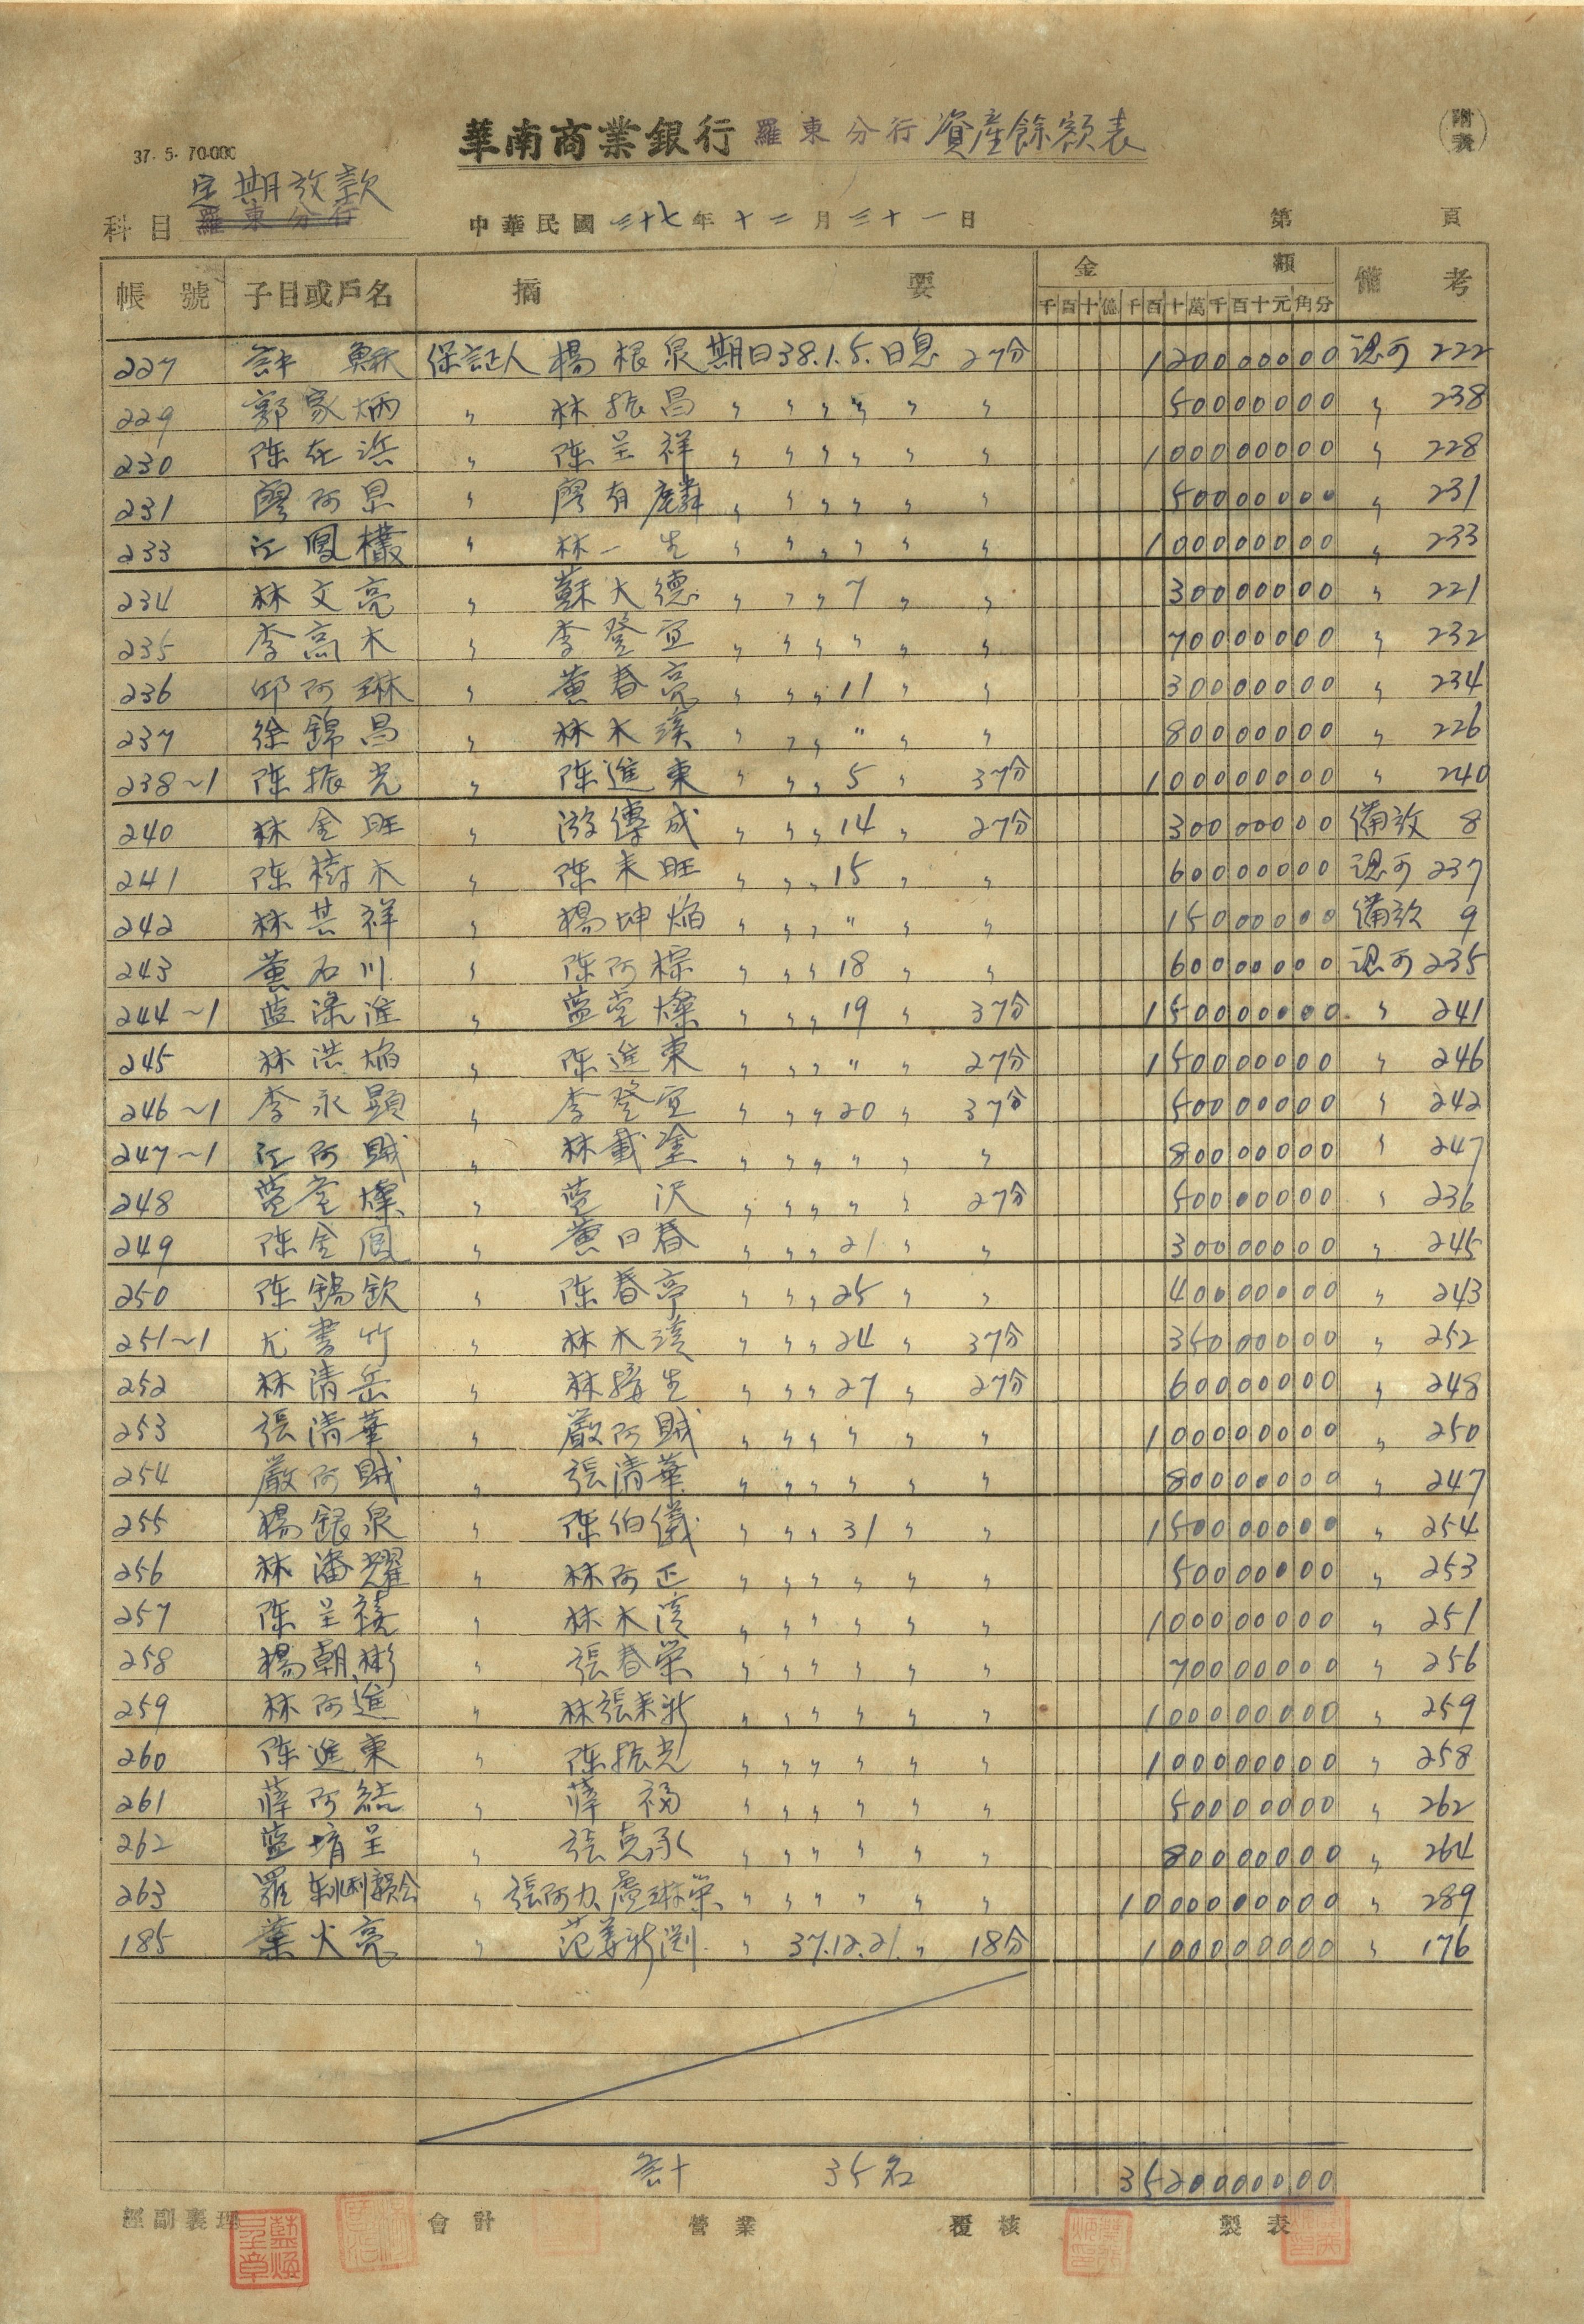 華南商業銀行 羅東分行 資產餘額表
附表
37. 5. 70.000
定期放款
科目 羅東分行 中華民國 三十七 年 十二 月 三十一 日 第 頁
帳號 子目或戶名 摘要 金額 備考
千百十億千百十萬千百十元角分
227 保証人 楊根泉 期日38.1.5. 日息 27分 120000000 認可 222
229 郭家炳 〃 林振昌 〃 〃 〃 〃 〃 〃 50000000 〃 238
230 陈在浜 〃 陈呈祥 〃 〃 〃 〃 〃 〃 100000000 〃 228
231 廖阿昆 〃 廖有麟 〃 〃 〃 〃 〃 〃 50000000 〃 231
233 江鳳欉 〃 林一生 〃 〃 〃 〃 〃 〃 100000000 〃 233
234 林文亮 〃 蘇大德 〃 〃 〃 7 〃 〃 30000000 〃 221
235 李高木 〃 李登宜 〃 〃 〃 〃 〃 〃 70000000 〃 232
236 邱阿琳 〃 黄春亮 〃 〃 〃 11 〃 〃 30000000 〃 234
237 徐錦昌 〃 林木溪 〃 〃 〃 〃 〃 〃 80000000 〃 226
238~1 陈振光 〃 陈進東 〃 〃 〃 5 〃 37分 100000000 〃 240
240 林金旺 〃 游傳成 〃 〃 〃 14 〃 27分 30000000 備放 8
241 陈樹木 〃 陈来旺 〃 〃 〃 15 〃 〃 60000000 認可 237
242 林其祥 〃 楊坤焰 〃 〃 〃 〃 〃 〃 15000000 備放 9
243 黄石川 〃 陈阿棕 〃 〃 〃 18 〃 〃 60000000 認可 235
244~1 藍添進 〃 藍堂燦 〃 〃 〃 19 〃 37分 150000000 〃 241
245 林洪焰 〃 陈進東 〃 〃 〃 〃 〃 27分 150000000 〃 246
246~1 李永顕 〃 李登宜 〃 〃 〃 20 〃 37分 50000000 〃 242
247~1 江阿賊 〃 林載塗 〃 〃 〃 〃 〃 〃 80000000 〃 247
248 藍堂燦 〃 藍沢 〃 〃 〃 〃 〃 27分 50000000 〃 236
249 陈金鳳 〃 黄日春 〃 〃 〃 21 〃 〃 30000000 〃 245
250 陈錫欽 〃 陈春亭 〃 〃 〃 25 〃 〃 40000000 〃 243
251~1 尤書竹 〃 林木溪 〃 〃 〃 24 〃 37分 35000000 〃 252
252 林清岳 〃 林接生 〃 〃 〃 27 〃 27分 60000000 〃 248
253 張清華 〃 嚴阿賊 〃 〃 〃 〃 〃 〃 100000000 〃 250
254 嚴阿賊 〃 張清華 〃 〃 〃 〃 〃 〃 80000000 〃 247
255 楊銀泉 〃 陈伯儀 〃 〃 〃 31 〃 〃 150000000 〃 254
256 林潘耀 〃 林阿正 〃 〃 〃 〃 〃 〃 50000000 〃 253
257 陈呈禧 〃 林木溪 〃 〃 〃 〃 〃 〃 100000000 〃 251
258 楊朝彬 〃 張春榮 〃 〃 〃 〃 〃 〃 70000000 〃 256
259 林阿進 〃 林張来新 〃 〃 〃 〃 〃 〃 100000000 〃 259
260 陈進東 〃 陈振光 〃 〃 〃 〃 〃 〃 100000000 〃 258
261 薛阿結 〃 薛福 〃 〃 〃 〃 〃 〃 50000000 〃 262
262 藍堉呈 〃 張克承 〃 〃 〃 〃 〃 〃 80000000 〃 264
263 羅東水利委員会 〃 張阿力、盧琳榮 〃 〃 〃 〃 〃 〃 1000000000 〃 289
185 葉火亮 〃 范姜新渕 〃 37.12.21. 〃 18分 100000000 〃 176
合計 35名 3520000000
經副襄理 會計 營業 覆核 製表